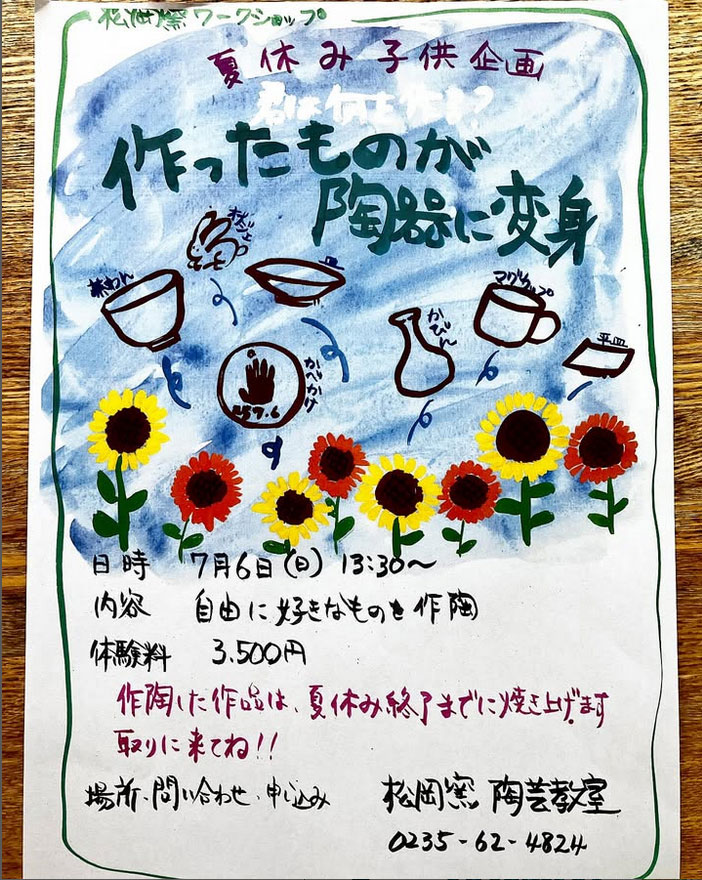 松岡窯ワークショップ
夏休み子供企画
君は何を作る?
作ったものが
陶器に変身
茶わん
皿
かべかけ
257.6
かびん
マグカップ
平皿
日時 7月6日(日) 13:30〜
内容 自由に好きなものを作陶
体験料 3.500円
作陶した作品は、夏休み終了までに焼き上げます
取りに来てね!!
場所、問い合わせ、申し込み 松岡窯 陶芸教室
0235-62-4824